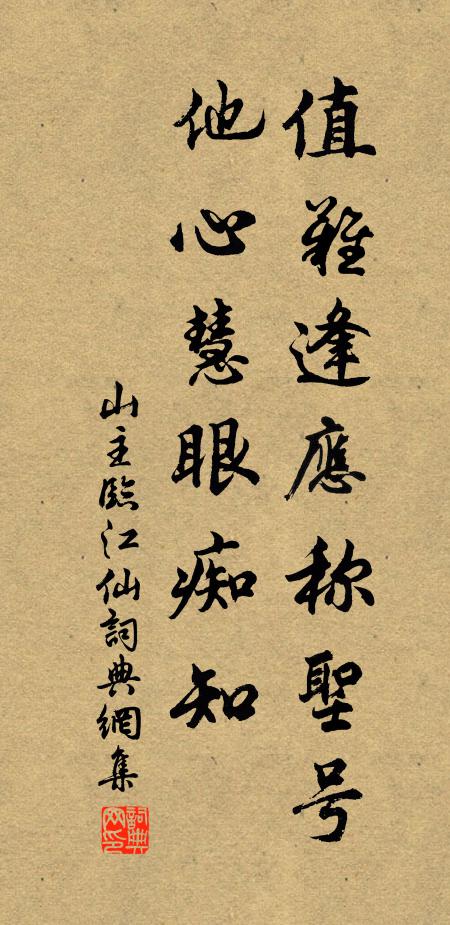 值难逢應称聖号
他心慧眼痴知
山主臨江仙詞典網集
詞典网印